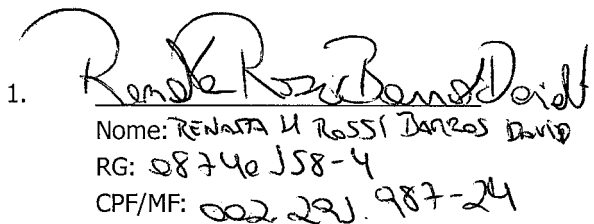 1. Renata Rossi Barros David
Nome: RENATA M ROSSI BARROS DAVID
RG: 08740158-4
CPF/MF: 002.291.987-24